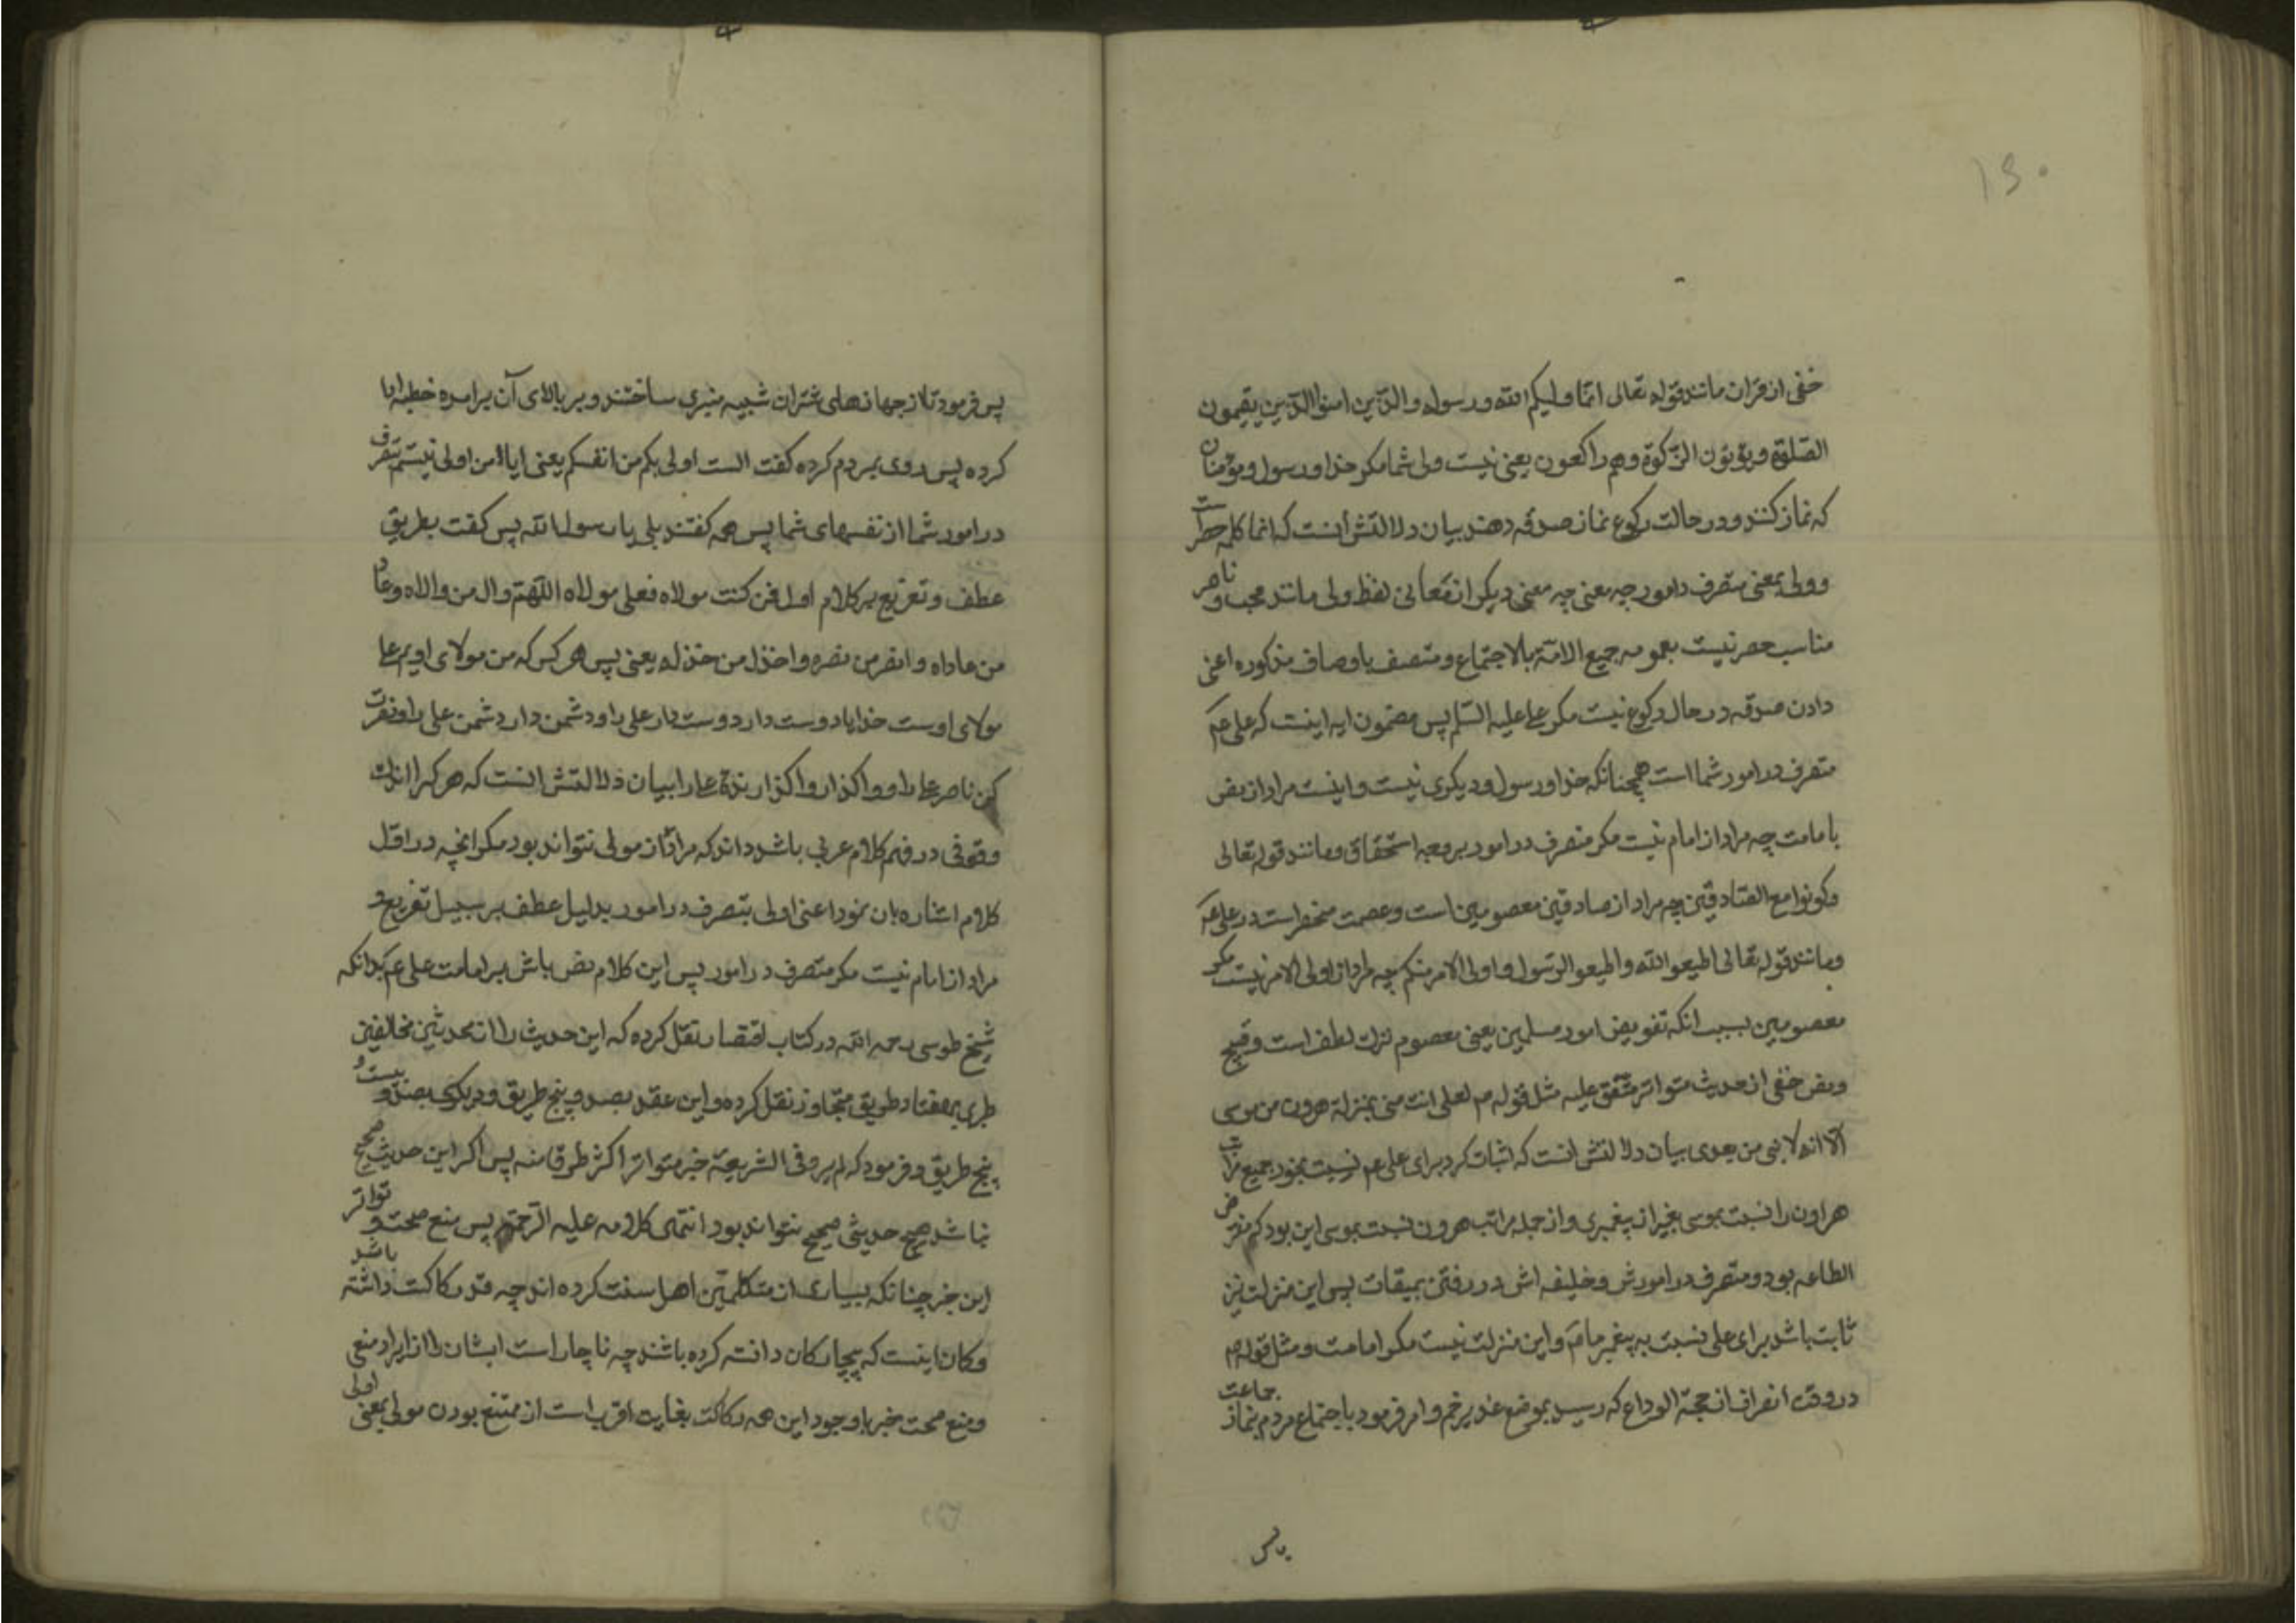 ۱۵۰
خفی از قران مانند قوله تعالی انما ولیکم الله ورسوله والذین امنوا الذین یقیمون
الصلوة ویؤتون الزکوة وهم راکعون یعنی نیست ولی شما مکر خدا ورسول ومؤمنان
که نماز کنند ودر حالت رکوع نماز صدقه دهند بیان دلالتش انست که انما کلمه حصر است
وولی بمعنی متصرف در امور چه معنی دیکر از معانی لفظ ولی مانند محب وناصر
مناسب حصر نیست بعموم جمیع الامة بالاجتماع ومتصف باوصاف مذکوره اعنی
دادن صدقه در حال رکوع نیست مکر علی علیه السلم پس مضمون ایه اینست که علی عم
متصرف در امور شما است همچنانکه خدا ورسول ودیکری نیست واینست مراد از نص
بامامت چه مراد از امام نیست مکر متصرف در امور بروجه استحقاق ومانند قوله تعالی
وکونوا مع الصادقین چه مراد از صادقین معصومین است وعصمت منحصر است در علی عم
ومانند قوله تعالی اطیعو الله واطیعو الرسول واولی الامر منکم چه مراد از اولی الامر نیست مکر
معصومین بسبب انکه تفویض امور مسلمین بغیر معصوم ترک لطف است وقبیح
ونص خفی از حدیث متواتر متفق علیه مثل قوله م لعلی انت منی بمنزلة هرون من موسی
الا انه لا نبی من بعدی بیان دلالتش انست که اثبات کرد برای علی عم نسبت بخود جمیع مراتب
هارون را نسبت بموسی بغیر از پیغمبری واز جمله مراتب هرون نسبت بموسی این بود که مفترض
الطاعه بود ومتصرف در امورش وخلیفه اش در رفتن بمیقات پس این منزلت نیز
ثابت باشد برای علی نسبت به پیغمبر ما ص واین منزلت نیست مکر امامت ومثل قوله م
در وقت انصراف از حجة الوداع که رسید بموضع غدیر خم وامر فرمود باجتماع مردم بنماز جماعت
پس
پس فرمود تا از جهازهای شتران شبیه منبری ساختند وبر بالای آن برامده خطبه ادا
کرده پس روی بمردم کرده کفت الست اولی بکم من انفسکم یعنی ایا من اولی نیستم بتصرف
در امور شما از نفسهای شما پس همه کفتند بلی یا رسول الله پس کفت بطریق
عطف وتفریع بر کلام اول فمن کنت مولاه فعلی مولاه اللهم وال من والاه وعاد
من عاداه وانصر من نصره واخذل من خذله یعنی پس هر کس که من مولای اویم علی
مولای اوست خدایا دوست دار دوست دار علی را ودشمن دار دشمن علی را ونصرت
کن ناصر علی را وواکذار واکذارندهٔ علی را بیان دلالتش انست که هر کرا اندک
وقوفی در فهم کلام عربی باشد داند که مراد از مولی نتواند بود مکر انچه در اول
کلام اشاره بان نمود اعنی اولی بتصرف در امور بدلیل عطف بر سبیل تفریع و
مراد از امام نیست مکر متصرف در امور پس این کلام نص باشد بر امامت علی عم بدانکه
شیخ طوسی رحمه الله در کتاب اقتصار نقل کرده که این حدیث را از محدثین مخالفین
طبری بهفتاد طریق متجاوز نقل کرده وابن عقد بصد وپنج طریق ودیکری بصد وبیست و
پنج طریق وفرمود که لم یرو فی الشریعة خبر متواتر اکثر طرقا منه پس اکر این حدیث صحیح
نباشد هیچ حدیثی صحیح نتواند بود انتهی کلامه علیه الرحمة پس منع صحت وتواتر
این خبر چنانکه بسیاری از متکلمین اهل سنت کرده اند چه قدر رکاکت داشته باشد
وکان اینست که بیچارکان دانسته کرده باشند چه ناچار است ایشان را از ایراد منعی
ومنع صحت خبر با وجود این همه رکاکت بغایت اقرب است از ممتنع بودن مولی بمعنی اولی